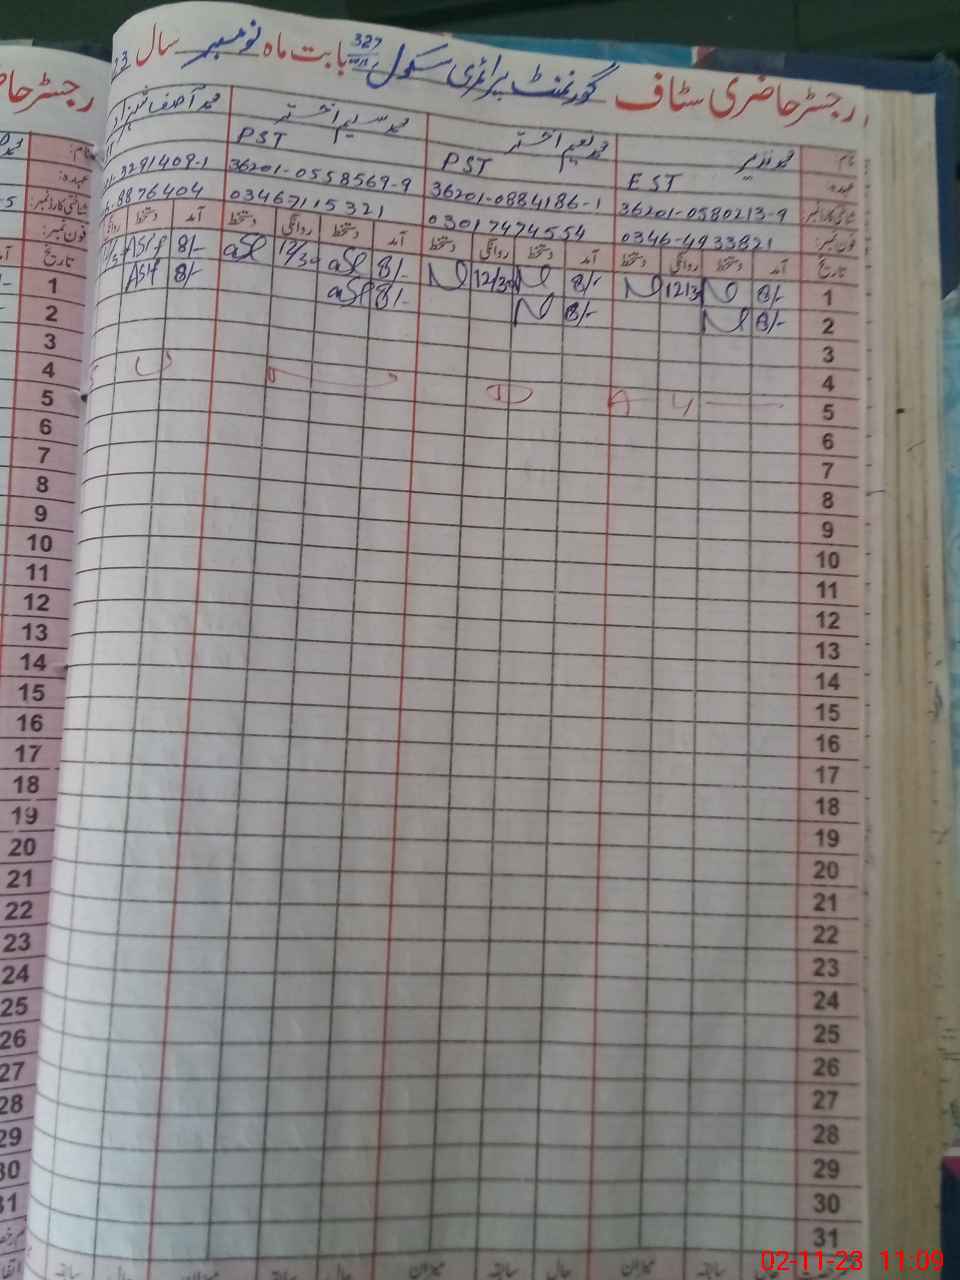 رجسٹر حاضری سٹاف گورنمنٹ پرائمری سکول 327 بابت ماہ نومبر سال 23
رجسٹر حا
نام: محمد نذیر محمد نعیم اختر محمد سلیم اختر محمد آصف شہزاد
عہدہ: EST PST PST
شناختی کارڈ نمبر: 36201-0580213-9 36201-0884186-1 36201-0558569-9 3291409-1
فون نمبر: 0346-4933821 03017474554 03467115321 8876404
تاریخ آمد دستخط روانگی دستخط آمد دستخط روانگی دستخط آمد دستخط روانگی دستخط آمد دستخط روانگی
1 8/- 12/30 8/- 12/30 8/- 12/30 8/-
2 8/- 8/- 8/- 8/-
3
4
5
6
7
8
9
10
11
12
13
14
15
16
17
18
19
20
21
22
23
24
25
26
27
28
29
30
31
میزان حال سابقہ میزان حال سابقہ
1
2
3
4
5
6
7
8
9
10
11
12
13
14
15
16
17
18
19
20
21
22
23
24
25
26
27
28
29
30
31
02-11-23 11:09